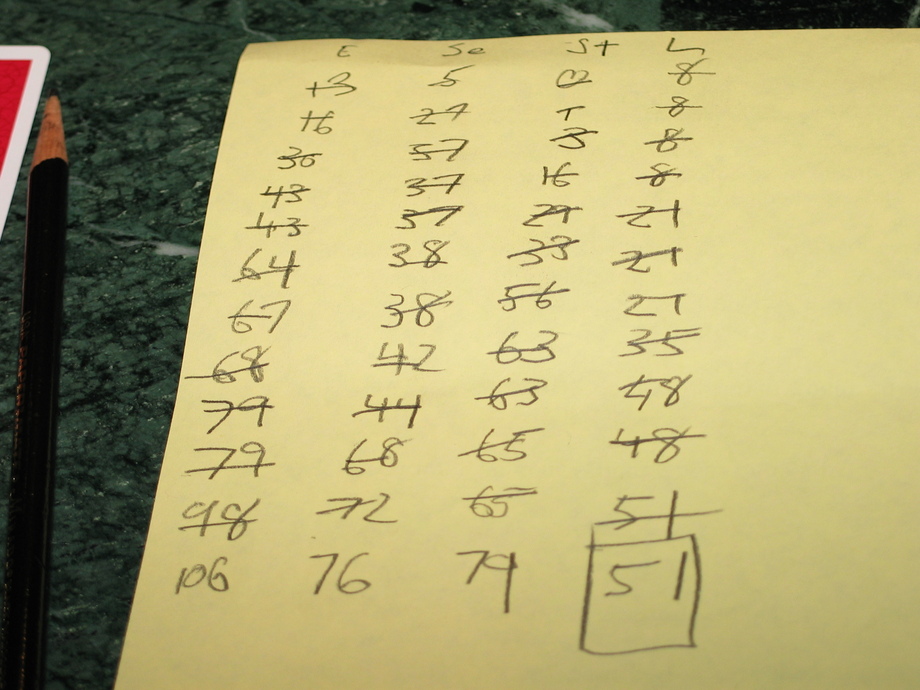 E Se St L
13 5 0 8
16 27 1 8
30 37 3 8
43 37 16 8
43 37 29 21
64 38 33 21
67 38 56 21
68 42 63 35
79 44 63 48
79 68 65 48
98 72 65 51
106 76 79 51